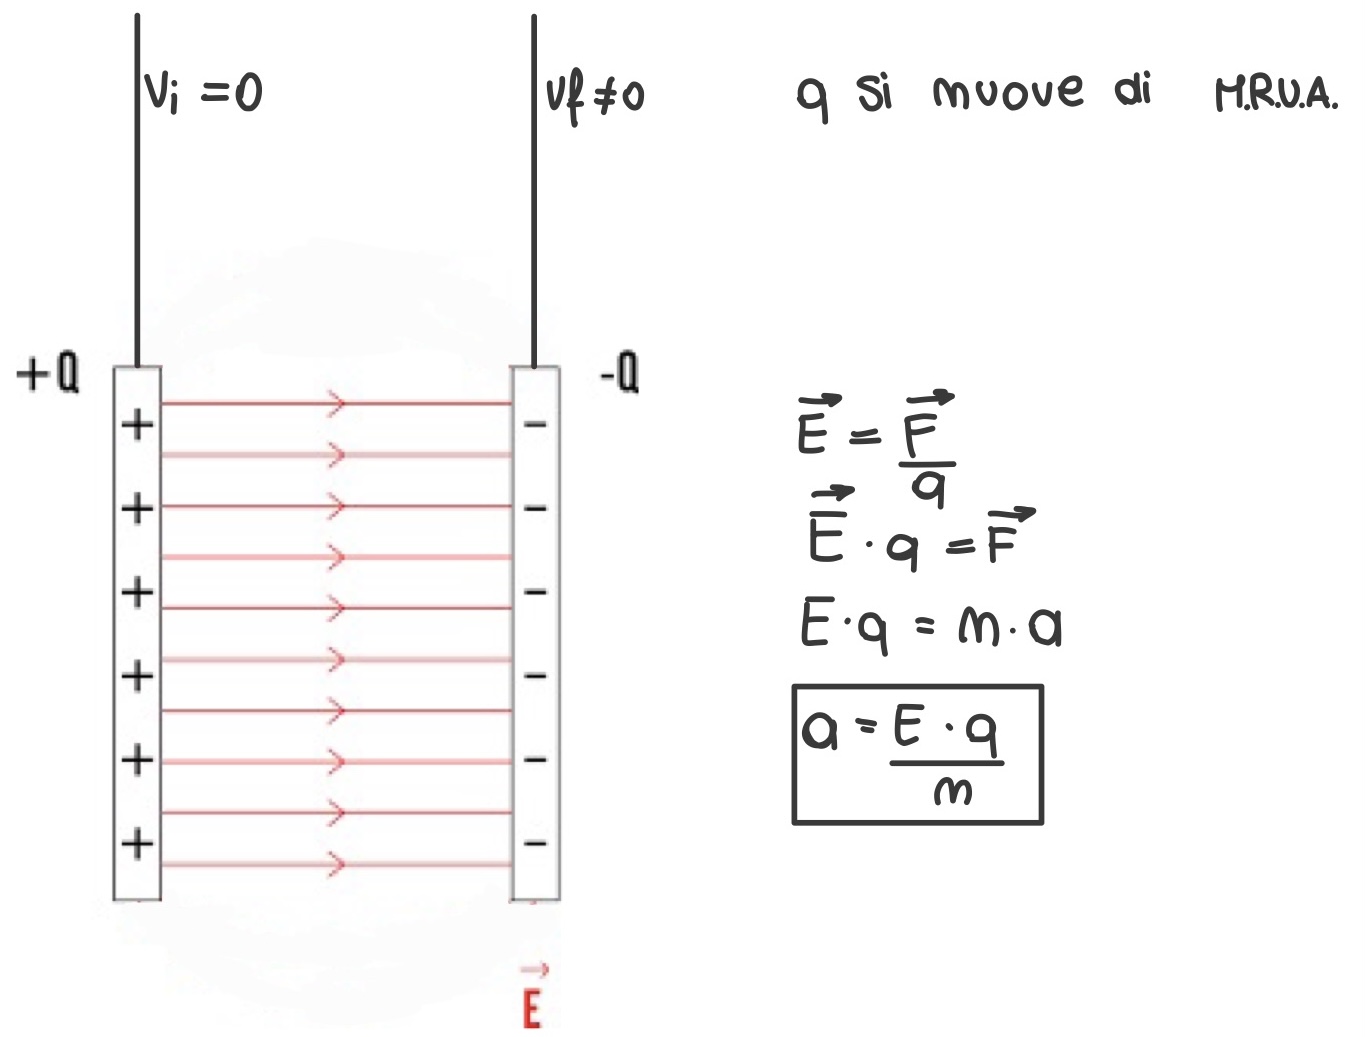 Vi = 0
Vf ≠ 0
q si muove di M.R.U.A.
+Q
-Q
+ -
+ -
+ -
+ -
+ -
+ -
E⃗ = F⃗ / q
E⃗ · q = F⃗
E · q = m · a
a = E · q / m
E⃗